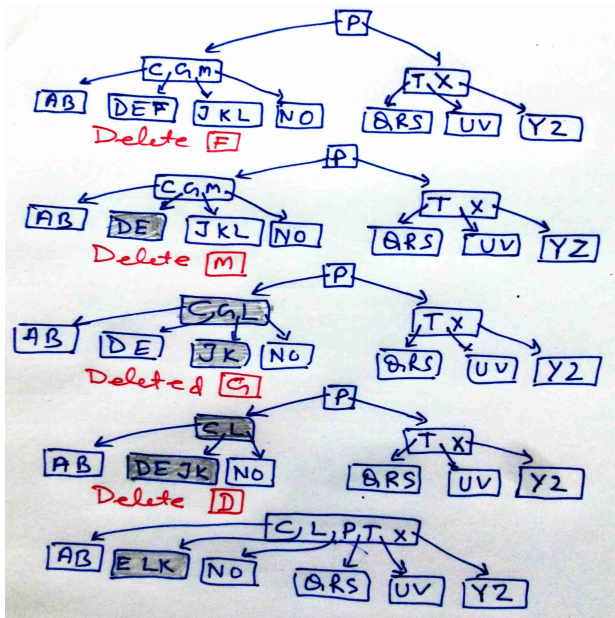 P
C G M T X
AB DEF JKL NO QRS UV YZ
Delete F
P
C G M T X
AB DE JKL NO QRS UV YZ
Delete M
P
C G L T X
AB DE JK NO QRS UV YZ
Deleted G
P
C L T X
AB DE JK NO QRS UV YZ
Delete D
C L P T X
AB ELK NO QRS UV YZ